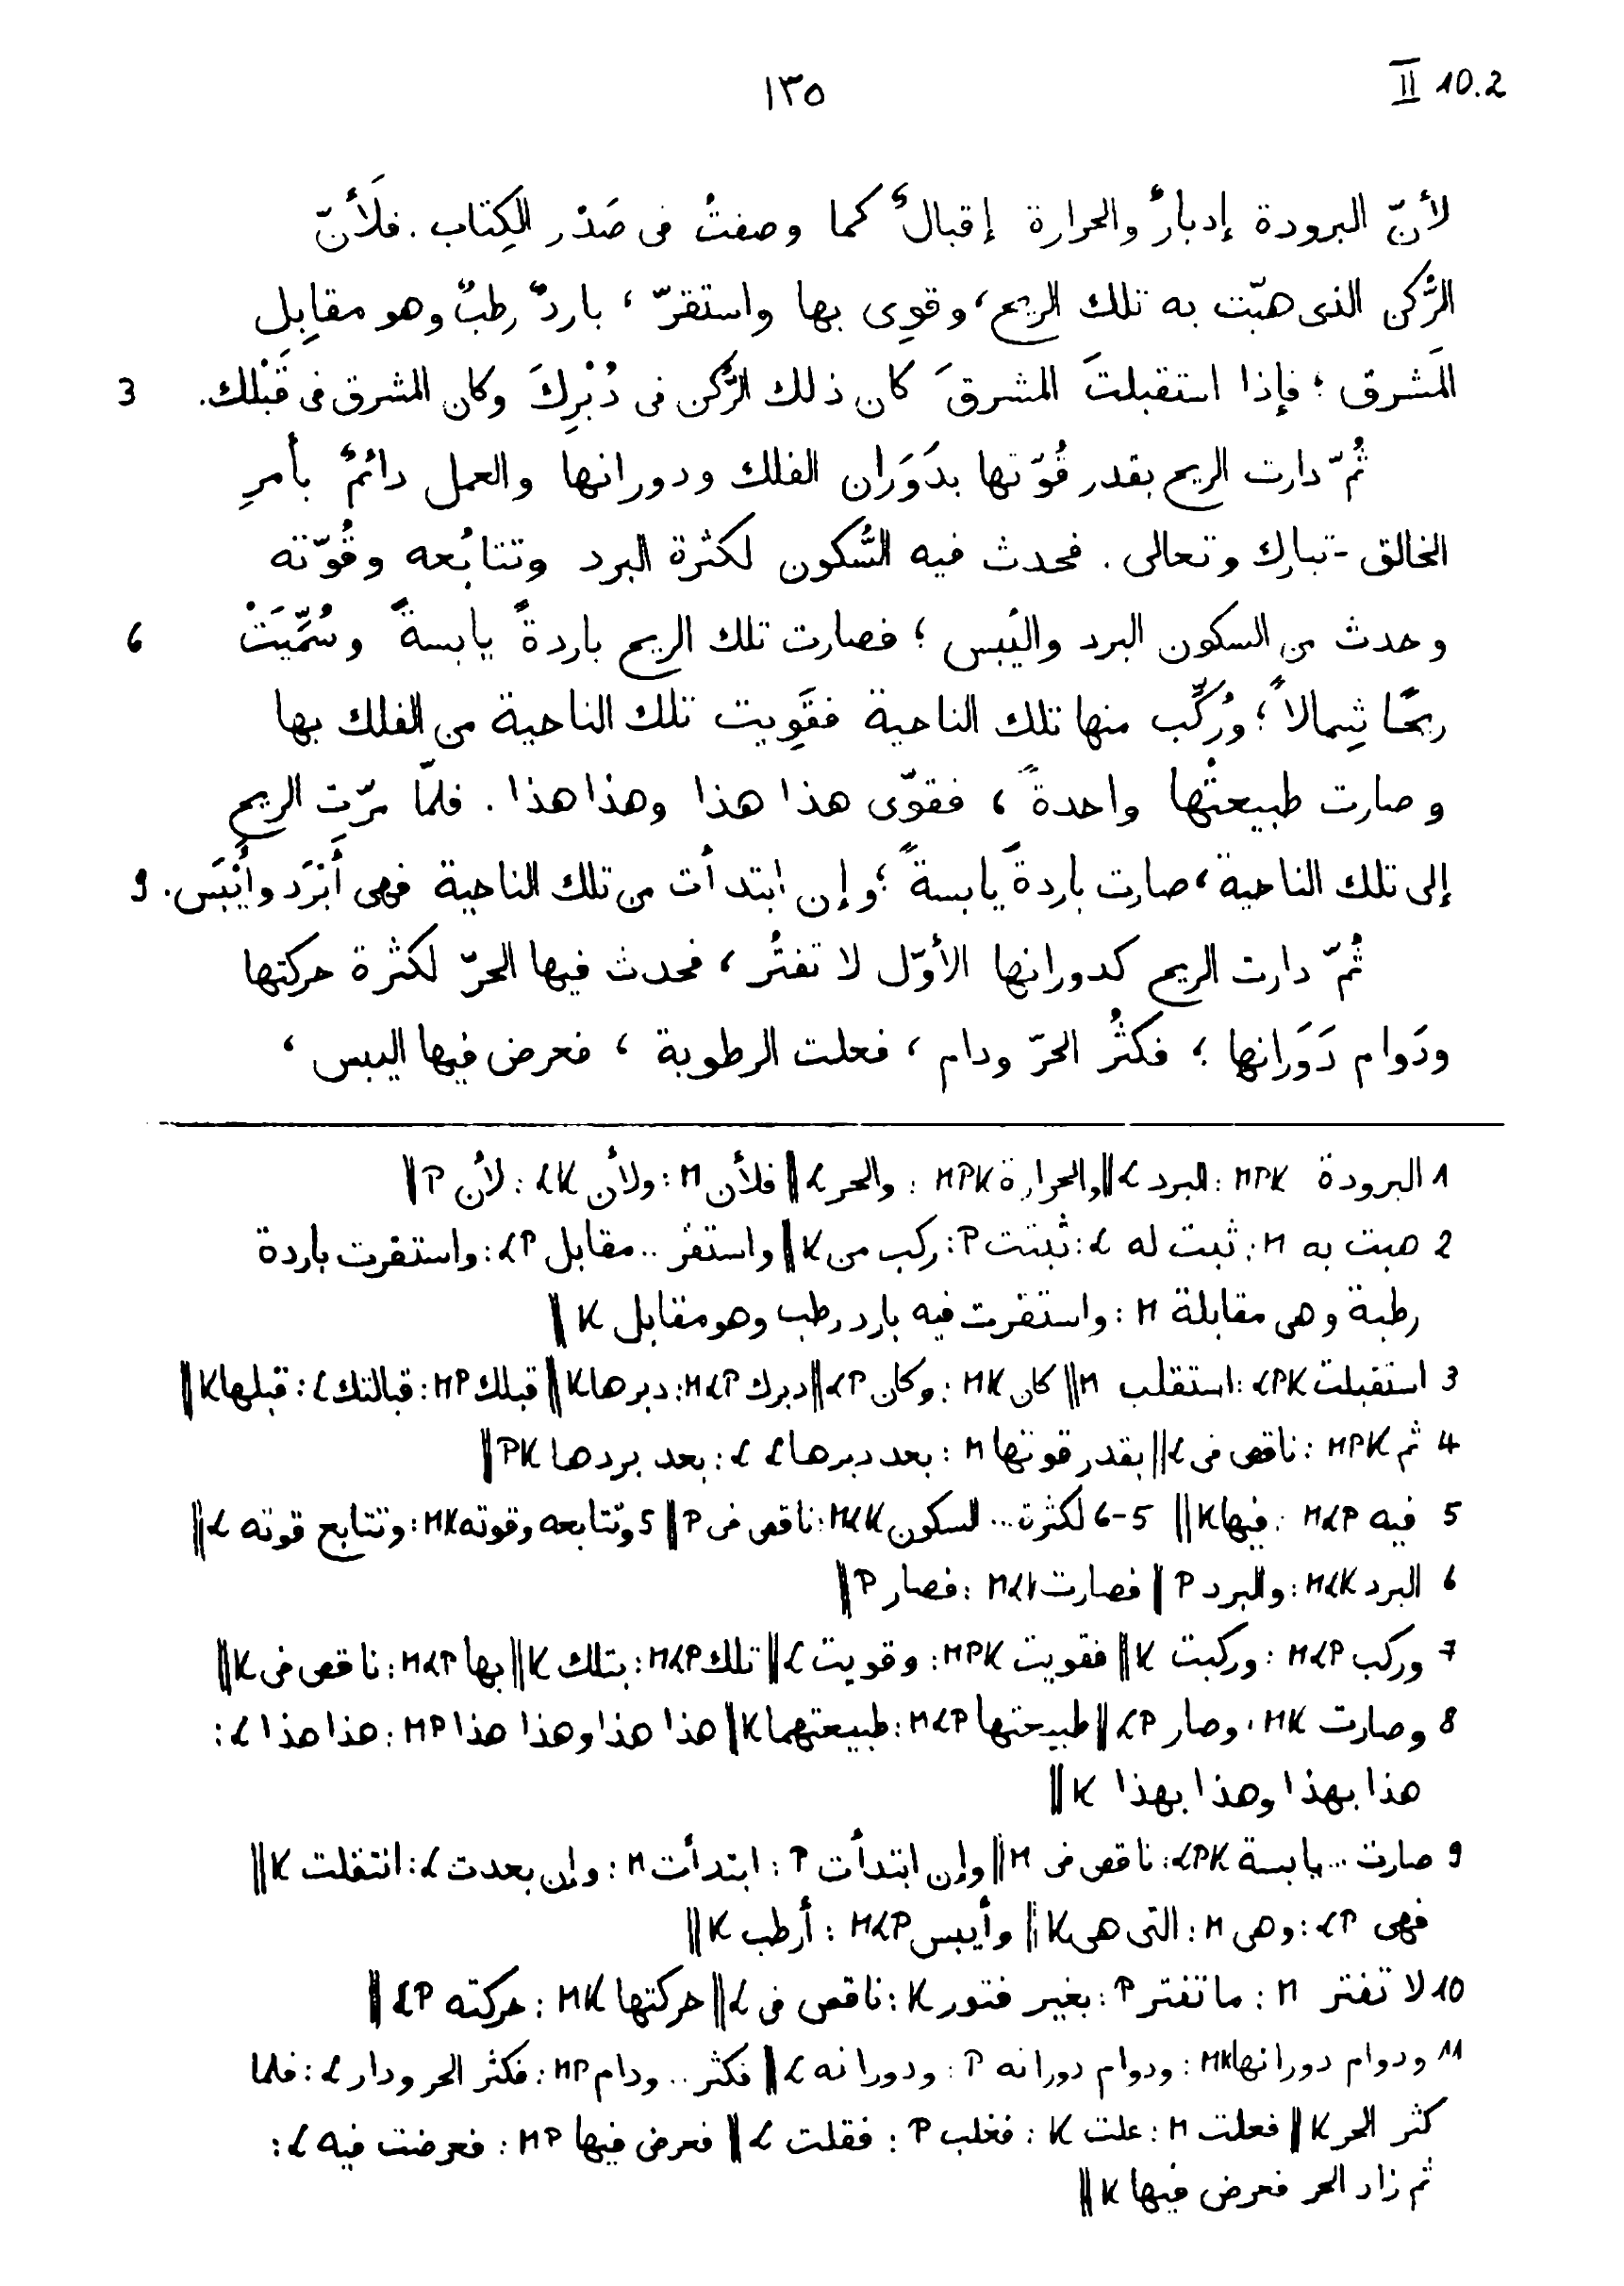 ١٣٥
II 10.2
لأنّ البرودة إدبارٌ والحرارة إقبالٌ كما وصفتُ فى صَدْر الكِتاب. فَلَأنّ
الرُّكن الذى هبّت به تلك الريح، وقوِى بها واستقرّ، باردٌ رطبٌ وهو مقابِل
المَشرق؛ فإذا استقبلتَ المشرقَ كان ذلك الرُّكن فى دُبْرِكَ وكان المشرق فى قَبْلك. 3
ثُمّ دارت الريح بقدر قُوّتها بدَوَران الفلك ودورانها والعمل دائمٌ بأمرِ
الخالق - تبارك وتعالى. فحدث فيه السُّكون لكثرة البرد وتتابُعه وقُوّته
وحدث من السكون البرد واليُبس؛ فصارت تلك الريح باردةً يابسةً وسُمِّيَتْ 6
ريحًا شِمالاً؛ ورُكِّب منها تلك الناحية فقَوِيت تلك الناحية من الفلك بها
وصارت طبيعتُها واحدةً، فقوّى هذا هذا وهذا هذا. فلمّا مرّت الريح
إلى تلك الناحية، صارت باردةً يابسةً؛ وإن ابتدأت من تلك الناحية فهى أَبْرَد وأَيْبَس. 9
ثُمّ دارت الريح كدورانها الأوّل لا تفتُر، فحدث فيها الحرّ لكثرة حركتها
ودَوام دَوَرانها؛ فكثُر الحرّ ودام، فعلت الرطوبة، فعرض فيها اليبس،
1 البرودة MPK: البرد L || والحرارة MPK: والحر L || فلأن M: ولأن LK: لأن P ||
2 هبت به M: ثبت له L: ثبتت P: ركب من K || واستقر .. مقابل LP: واستقرت باردة
رطبة وهى مقابلة M: واستقرت فيه بارد رطب وهو مقابل K ||
3 استقبلت LPK: استقلب M || كان MK: وكان LP || دبرك MLP: دبرها K || قبلك MP: قبالتك L: قبلها K ||
4 ثم MPK: ناقص فى L || بقدر قوتها M: بعد دبرها L: بعد بردها PK ||
5 فيه MLP: فيها K || 5-6 لكثرة... السكون MLK: ناقص فى P || 5 وتتابعه وقوته MK: وتتابع قوته L ||
6 البرد MLK: والبرد P || فصارت MLK: فصار P ||
7 وركب MLP: وركبت K || فقويت MPK: وقويت L || تلك MLP: بتلك K || بها MLP: ناقص فى K ||
8 وصارت MK: وصار LP || طبيعتها MLP: طبيعتهما K || هذا هذا وهذا هذا MP: هذا هذا L:
هذا بهذا وهذا بهذا K ||
9 صارت... يابسة LPK: ناقص فى M || وإن ابتدأت P: ابتدأت M: وإن بعدت L: انتقلت K ||
فهى LP: وهى M: التى هى K || وأيبس MLP: أرطب K ||
10 لا تفتر M: ما تفتر P: بغير فتور K: ناقص فى L || حركتها MK: حركته LP ||
11 ودوام دورانها MK: ودوام دورانه P: ودورانه L || فكثر .. ودام MP: فكثر الحر ودار L: فلما
كثر الحر K || فعلت M: علت K: فغلب P: فقلت L || فعرض فيها MP: فعرضت فيه L:
ثم زاد الحر فعرض فيها K ||